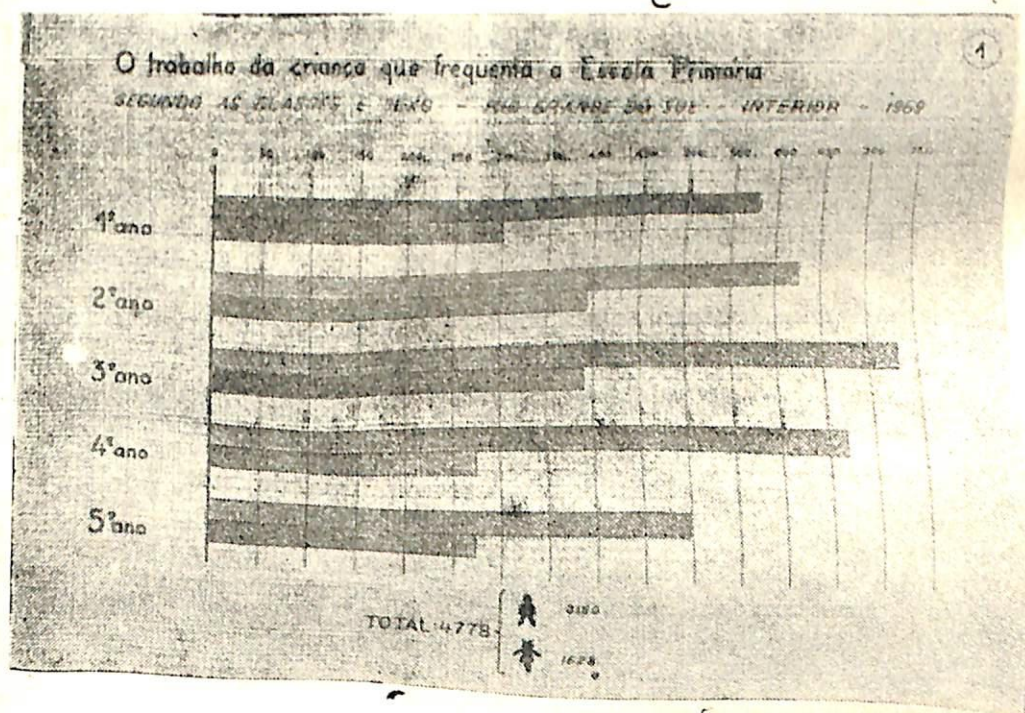 1
O trabalho da criança que freqüenta a Escola Primária
SEGUNDO AS CLASSES E SEXO - RIO GRANDE DO SUL - INTERIOR - 1969
0 50 100 150 200 250 300 350 400 450 500 550 600 650 700 750
1º ano
2º ano
3º ano
4º ano
5º ano
TOTAL: 4778
3150
1628